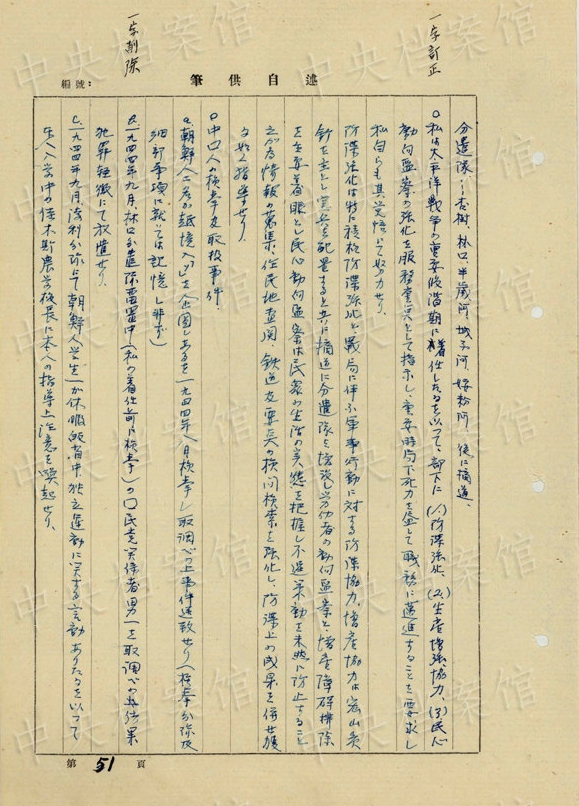 一字訂正
一字削除
述自供筆
編號：
分遣隊…杏樹、林口、半截河、城子河、 後に 道、
○私は太平洋戦争の重要段階期に着任したるを以つて、部下に(1)防諜強化、(2)生産増強協力、(3)民心
動向監察の強化を服務 として指示し、重要時局下死力を盡して職務に邁進することを要求し
私自らも其覚悟にて努力せり。
防諜強化は特に積極防諜強化と戦局に伴ふ軍事行動に対する防諜協力、増産協力は
を主とし 配置すると共に 道に分遣隊を増設し労働者の動向監察と増産障碍排除
を主要着眼とし民心動向監察は民衆の生活の実態を把握し不逞策動を未然に防止すること
之が為情報の蒐集、住民地査閲、鉄道交要点の検問検索を強化し、防諜上の成果を併せ
る如く指導せり。
○中国人の検挙及取扱事件.
a.朝鮮人一名が越境入ソを企図しあるを一九四四年八月検挙し取調べの上事件送致せり(検挙分
細部事項に就いては記憶し非ず)
b.一九四四年九月、林口分遣隊留置中(私の着任前に検挙)の国民党関係者男一を取調べの結果
犯罪軽微にて放遣せり。
c.一九四四年九月、 分 にて朝鮮人学生一が休暇帰省中、独立運動に関する言動ありたるを以つて
本人入学中の佳木斯農学校長に本人の指導上注意を喚起せり。
第 51 頁
中央档案馆